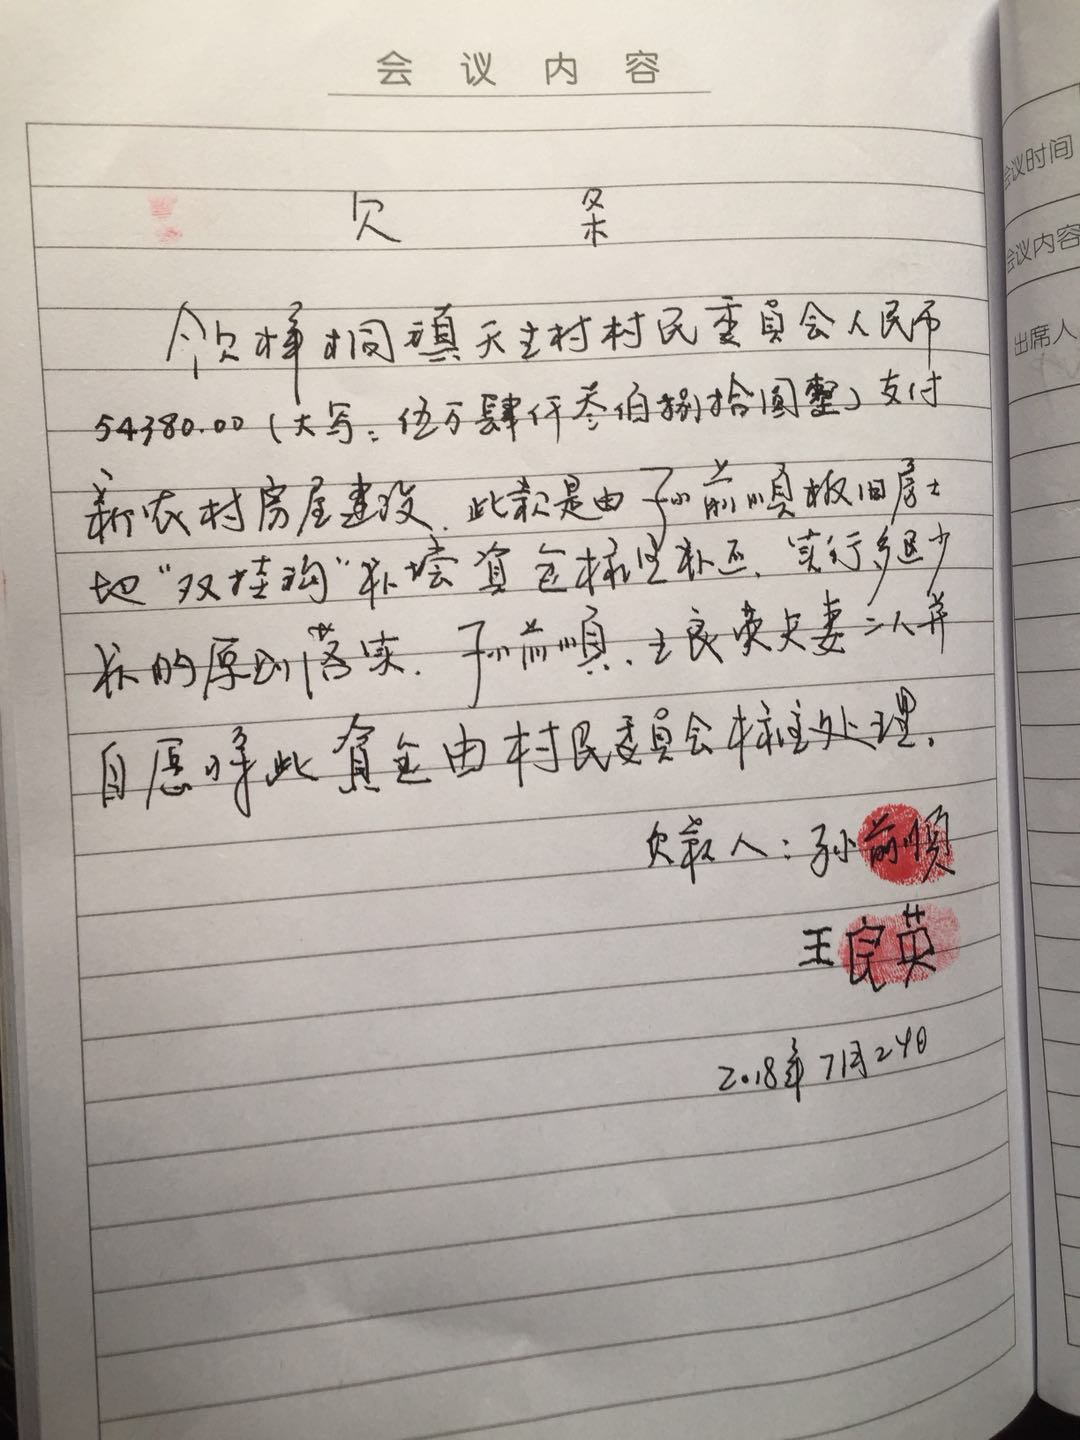 会议内容
欠条
今欠梓桐镇天主村村民委员会人民币
54380.00(大写:伍万肆仟叁佰捌拾圆整)支付
新农村房屋建设.此款是由孙前顺板旧房土
地"双挂沟"补偿资金核里补还.实行多退少
补的原则落实.孙前顺、王良英夫妻二人并
自愿将此资金由村民委员会核主处理.
欠款人:孙前顺
王良英
2018年7月24日
会议时间
会议内容
出席人